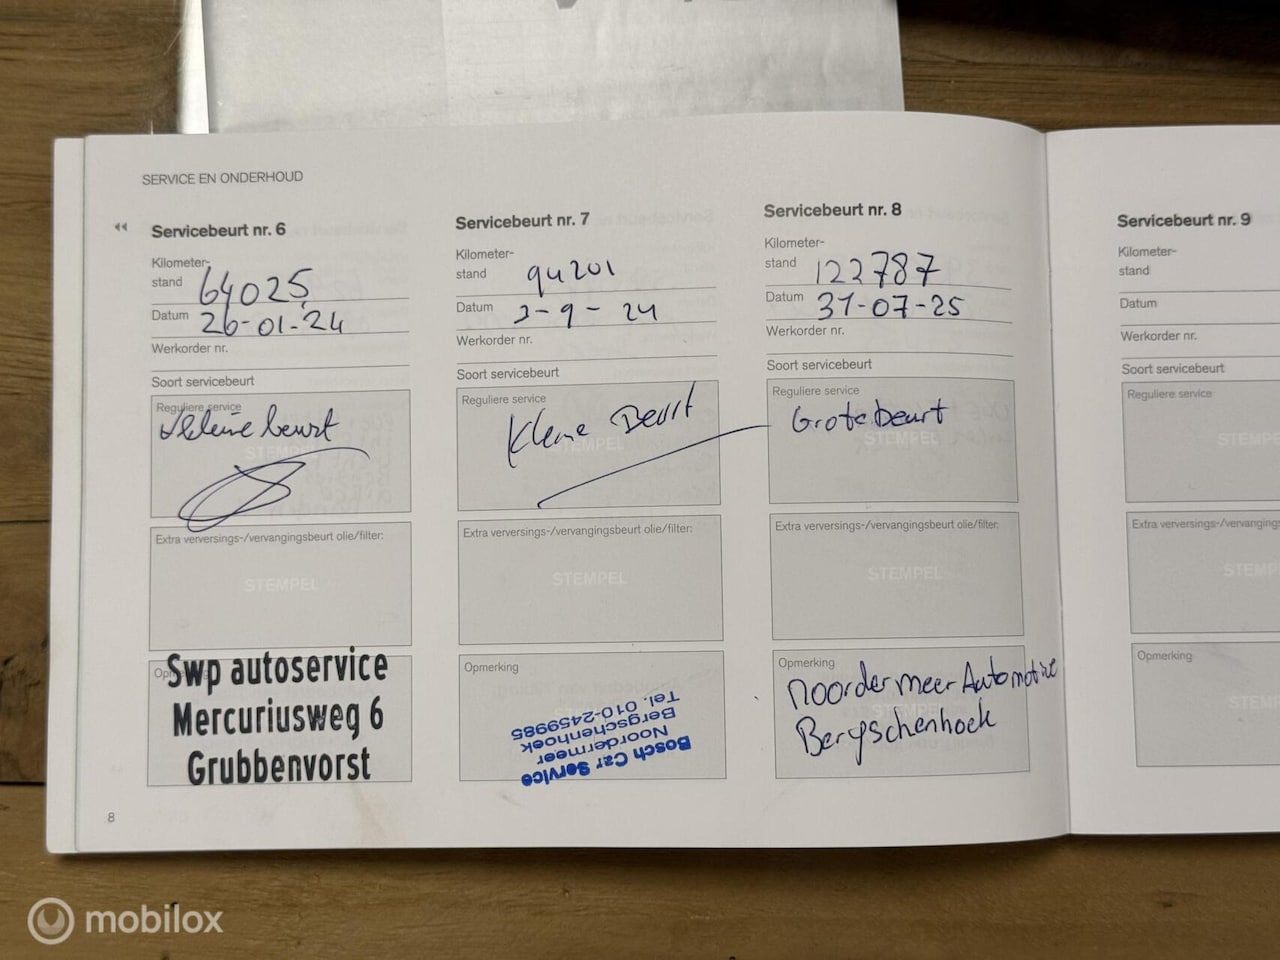 SERVICE EN ONDERHOUD
Servicebeurt nr. 6
Kilometer-
stand 64025
Datum 26-01-24
Werkorder nr.
Soort servicebeurt
Reguliere service
Kleine beurt
STEMPEL
Extra verversings-/vervangingsbeurt olie/filter:
STEMPEL
Swp autoservice
Mercuriusweg 6
Grubbenvorst
Servicebeurt nr. 7
Kilometer-
stand 94201
Datum 2-9-24
Werkorder nr.
Soort servicebeurt
Reguliere service
Kleine Beurt
STEMPEL
Extra verversings-/vervangingsbeurt olie/filter:
STEMPEL
Opmerking
Bosch Car Service
Noordermeer
Bergschenhoek
Tel. 010-2459985
Servicebeurt nr. 8
Kilometer-
stand 122787
Datum 31-07-25
Werkorder nr.
Soort servicebeurt
Reguliere service
Grote beurt
STEMPEL
Extra verversings-/vervangingsbeurt olie/filter:
STEMPEL
Opmerking
Noordermeer Automotive
Bergschenhoek
Servicebeurt nr. 9
Kilometer-
stand
Datum
Werkorder nr.
Soort servicebeurt
Reguliere service
Extra verversings-/vervangings
Opmerking
8
mobilox